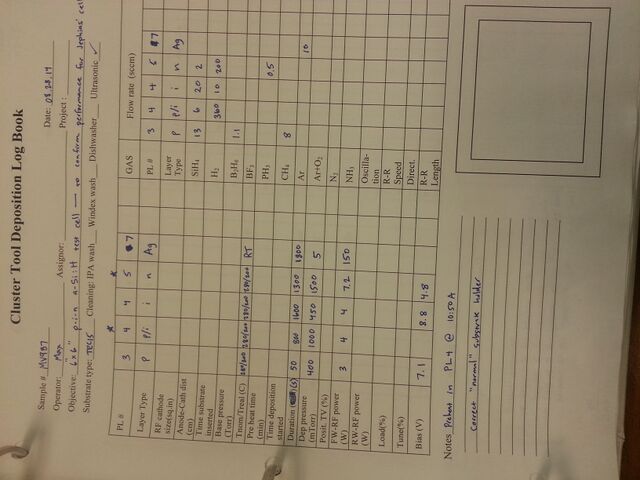 Cluster Tool Deposition Log Book
Sample #: MV987 Date: 08.28.14
Operator: Max Assignor: Project:
Objective: 6"x6" p-i-n a-Si:H test cell — to confirm performance for Jephias' cel
Substrate type: TEC15 Cleaning: IPA wash Windex wash Dishwasher Ultrasonic ✓
PL # 3 4 4 5 7
Layer Type p p/i i n Ag
RF cathode size(sq.in)
Anode-Cath dist (cm)
Time substrate inserted
Base pressure (Torr)
Tnom/Treal (C) RT
Pre heat time (min)
Time deposition started
Duration (s) 50 800 1600 1300 1800
Dep pressure (mTorr) 400 1000 450 1500 5
Posit. TV (%)
FW-RF power (W) 3 4 4 7.2 150
RW-RF power (W)
Load(%)
Tune(%)
Bias (V) 7.1 8.8 4.8
GAS Flow rate (sccm)
PL # 3 4 4 5 7
Layer Type p p/i i n Ag
SiH4 13 6 20 2
H2 360 10 200
B2H6 1.1
BF3
PH3 0.5
CH4 8
Ar 10
Ar+O2
N2
NH3
Oscillation
R-R Speed
Direct.
R-R Length
Notes: Preheat in PL4 @ 10:50A
Correct "normal" substrate holder